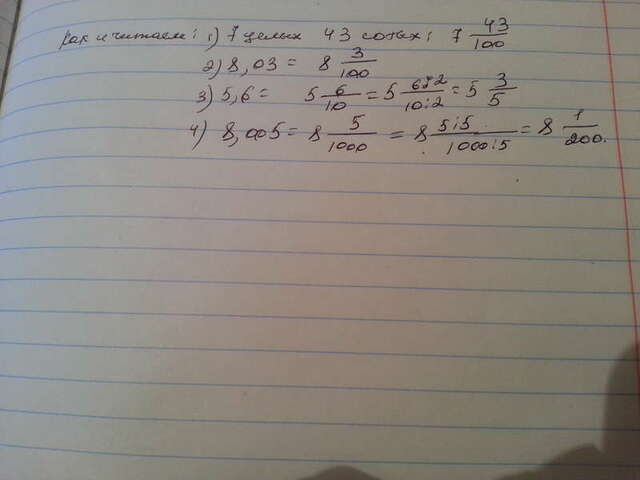 как и читаем: 1) 7 целых 43 сотых; 7 43/100
2) 8,03 = 8 3/100
3) 5,6 = 5 6/10 = 5 6:2/10:2 = 5 3/5
4) 8,005 = 8 5/1000 = 8 5:5/1000:5 = 8 1/200.